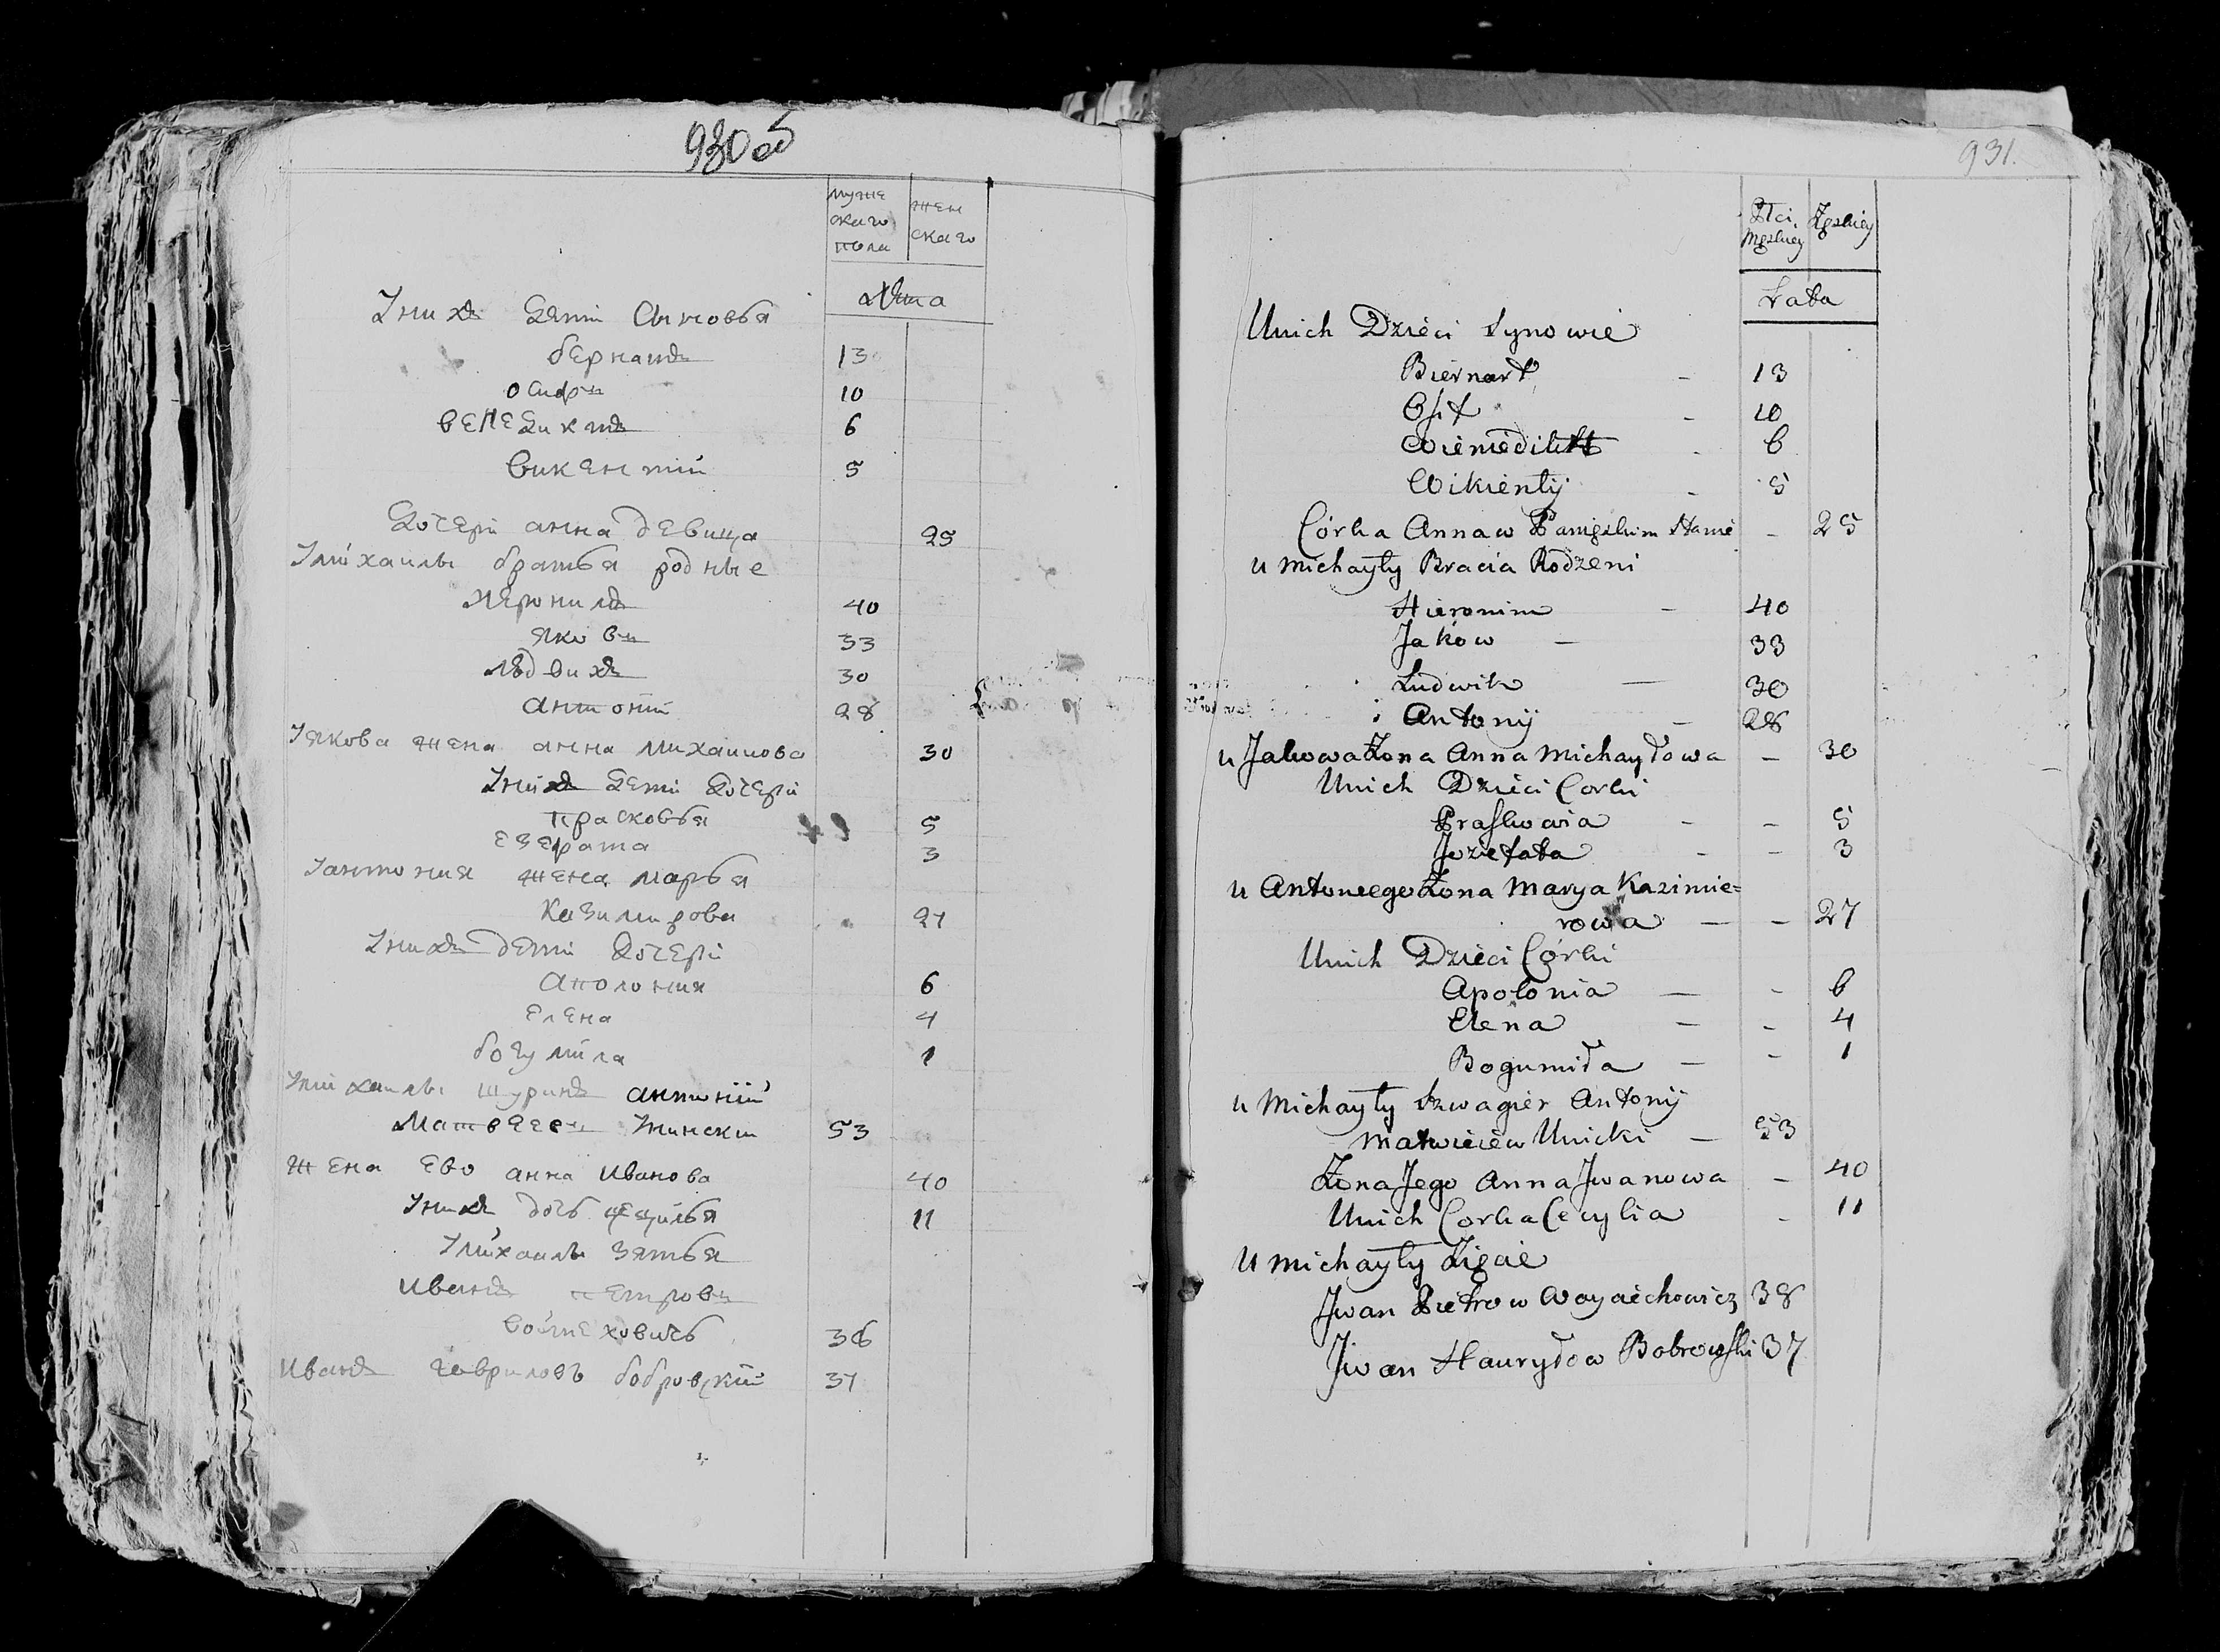 930 об
муже
скаго
пола
жен
скаго
лѣта
Унихъ дети сыновья
бернатъ 13
осифъ 10
венедиктъ 6
викентій 5
дочери анна девица 25
Умихаилы братья родные
Яковъ 33
людвихъ 30
антоній 28
Уякова жена анна михаилова 30
Унихъ дети дочери
прасковья 5
езефата 3
Уантония жена марья
казимирова 27
Унихъ дети дочери
аполония 6
елена 4
богумила 1
Умихаилы шуринъ антоній
Матвеевъ Уницкій 53
жена ево анна иванова 40
Унихъ дочь цецилья 11
Умихаилы зятья
иванъ петровъ
войцеховичь 38
иванъ гавриловъ бобровскій 37
931.
Płci
Męskiey
Żeskiey
Lata
Unich Dzieci Synowie
Biernart - 13
Osif - 10
Wieniedikt - 6
Wikientij - 5
Córka Anna w Panięskim Stanie - 25
u Michayły Bracia Rodzeni
Hieronim - 40
Jaków - 33
Ludwik - 30
i Antonij - 28
u Jakowa Żona Anna Michayłowa - 30
Unich Dzieci Corki
Praskowia - - 5
Jozefata - - 3
u Antoniego Żona Marya Kazimie=
rowa - - 27
Unich Dzieci Córki
Apolonia - - 6
Elena - - 4
Bogumiła - - 1
u Michayły Szwagier Antonij
Matwieiew Unicki - 53
Żona Jego Anna Jwanowa - 40
Unich Corka Cecylia - 11
U Michayły Zięcie
Jwan Pietrow Woyciechowicz 38
Jwan Hauryłow Bobrowski 37